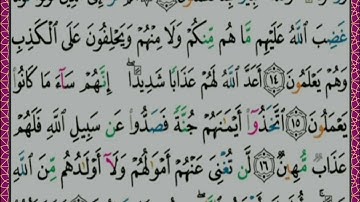 غَضِبَ ٱللَّهُ عَلَيْهِم مَّا هُم مِّنكُمْ وَلَا مِنْهُمْ وَيَحْلِفُونَ عَلَى ٱلْكَذِبِ
وَهُمْ يَعْلَمُونَ ١٤ أَعَدَّ ٱللَّهُ لَهُمْ عَذَابًا شَدِيدًا ۖ إِنَّهُمْ سَآءَ مَا كَانُوا۟
يَعْمَلُونَ ١٥ ٱتَّخَذُوٓا۟ أَيْمَٰنَهُمْ جُنَّةً فَصَدُّوا۟ عَن سَبِيلِ ٱللَّهِ فَلَهُمْ
عَذَابٌ مُّهِينٌ ١٦ لَّن تُغْنِىَ عَنْهُمْ أَمْوَٰلُهُمْ وَلَآ أَوْلَٰدُهُم مِّنَ ٱللَّهِ